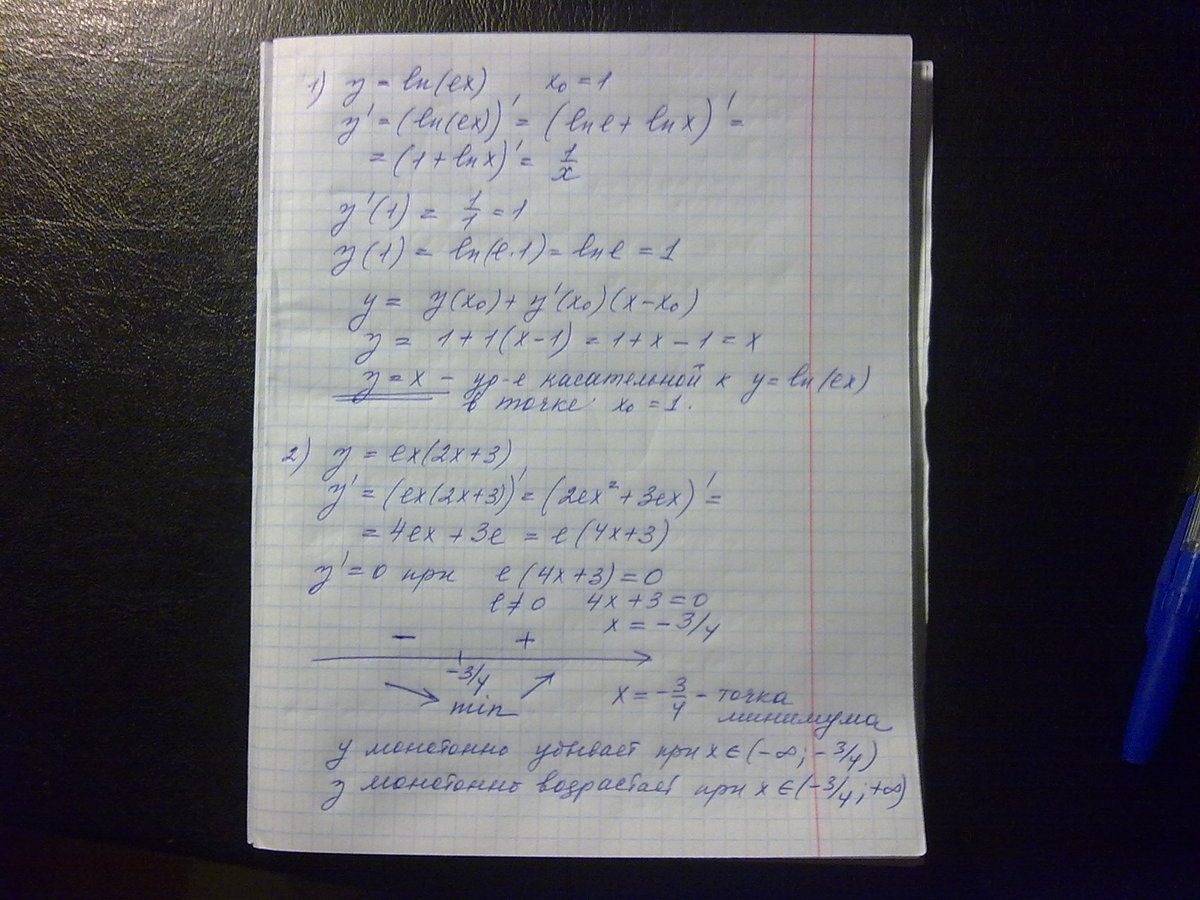 1) y = ln(ex) x₀ = 1
y' = (ln(ex))' = (ln e + ln x)' =
= (1 + ln x)' = 1/x
y'(1) = 1/1 = 1
y(1) = ln(e·1) = ln e = 1
y = y(x₀) + y'(x₀)(x-x₀)
y = 1 + 1(x-1) = 1 + x - 1 = x
y = x - ур-е касательной к y = ln(ex)
в точке x₀ = 1.
2) y = ex(2x+3)
y' = (ex(2x+3))' = (2ex² + 3ex)' =
= 4ex + 3e = e(4x+3)
y' = 0 при e(4x+3) = 0
e ≠ 0 4x + 3 = 0
x = -3/4
- +
-3/4
min x = -3/4 - точка
минимума
y монотонно убывает при x ∈ (-∞; -3/4)
y монотонно возрастает при x ∈ (-3/4; +∞)